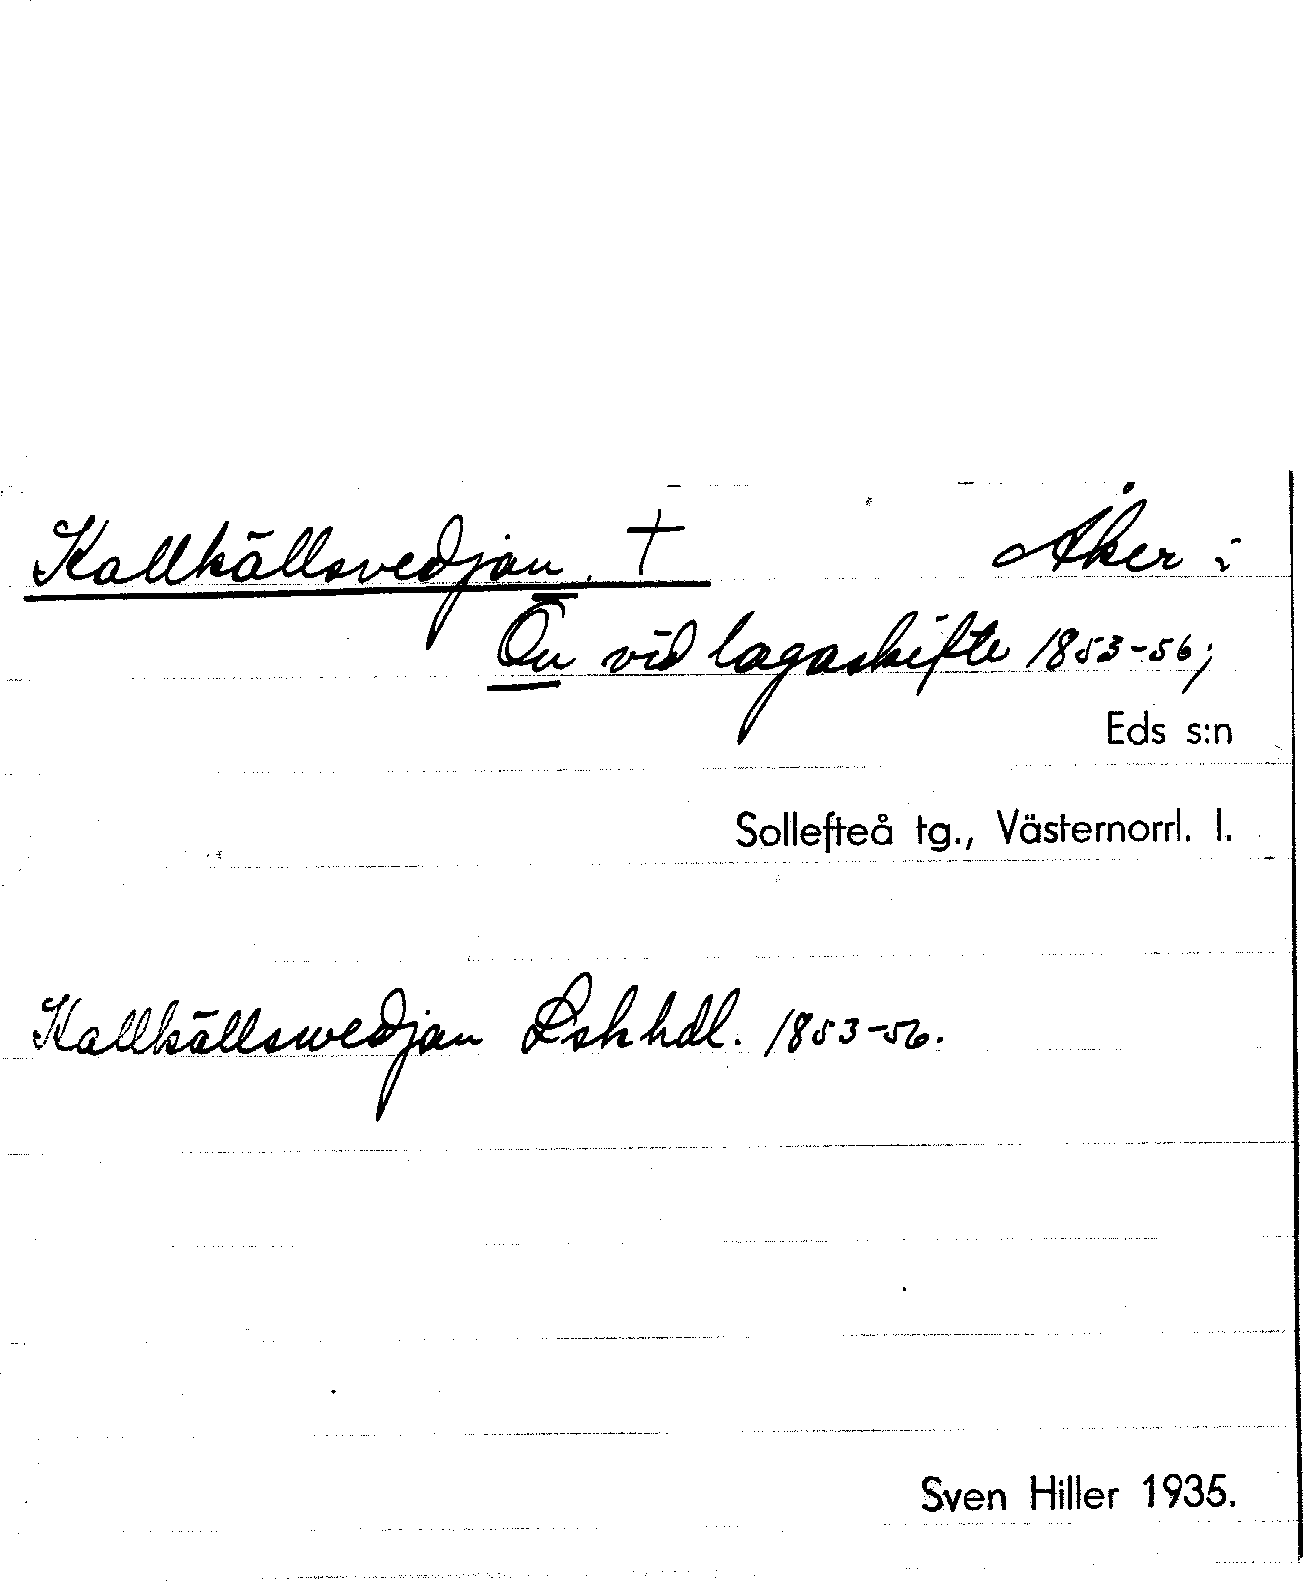 Kallkällsvedjan. † Åker i
Ön vid lagaskifte 1853-56;
Eds s:n
Sollefteå tg., Västernorrl. l.
Kallkällswedjan Lskhdl. 1853-56.
Sven Hiller 1935.